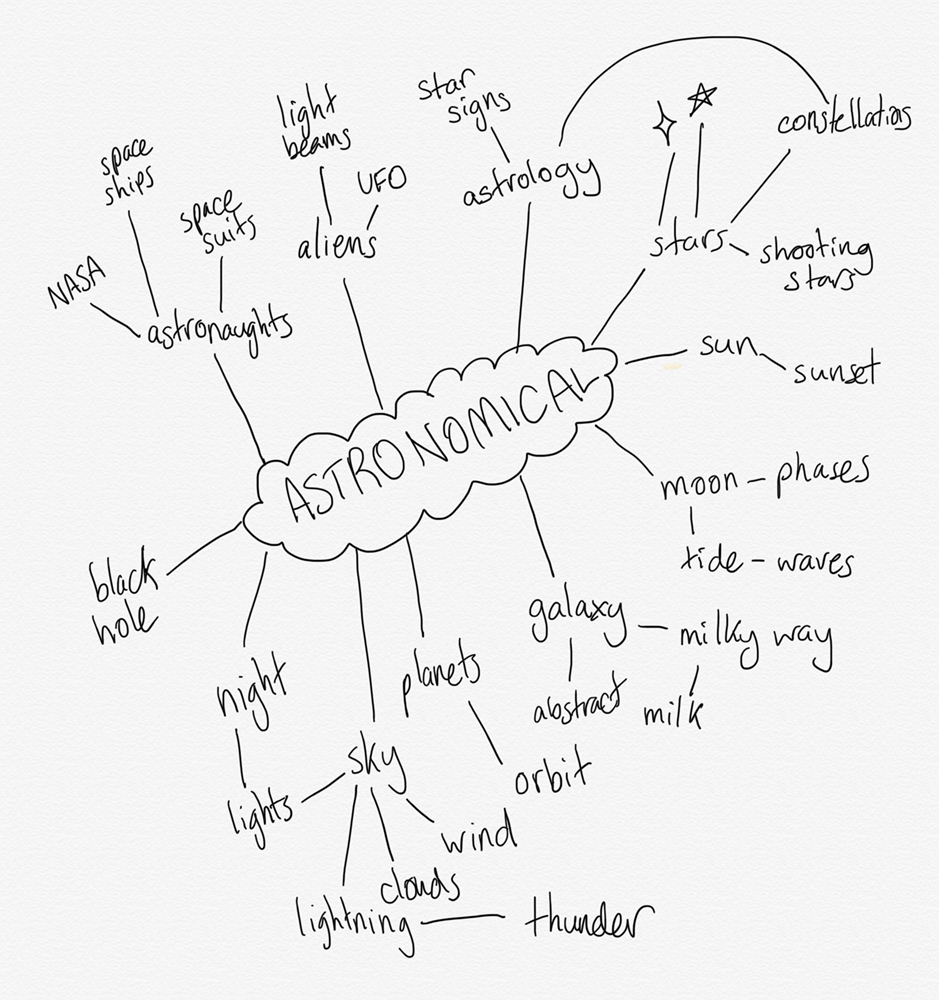 star
signs
light
beams
constellatios
space
ships
UFO
astrology
space
suits
aliens
stars
shooting
stars
NASA
astronaughts
sun
sunset
ASTRONOMICAL
moon - phases
tide - waves
black
hole
galaxy
milky way
night
planets
abstract
milk
sky
orbit
lights
wind
clouds
lightning
thunder